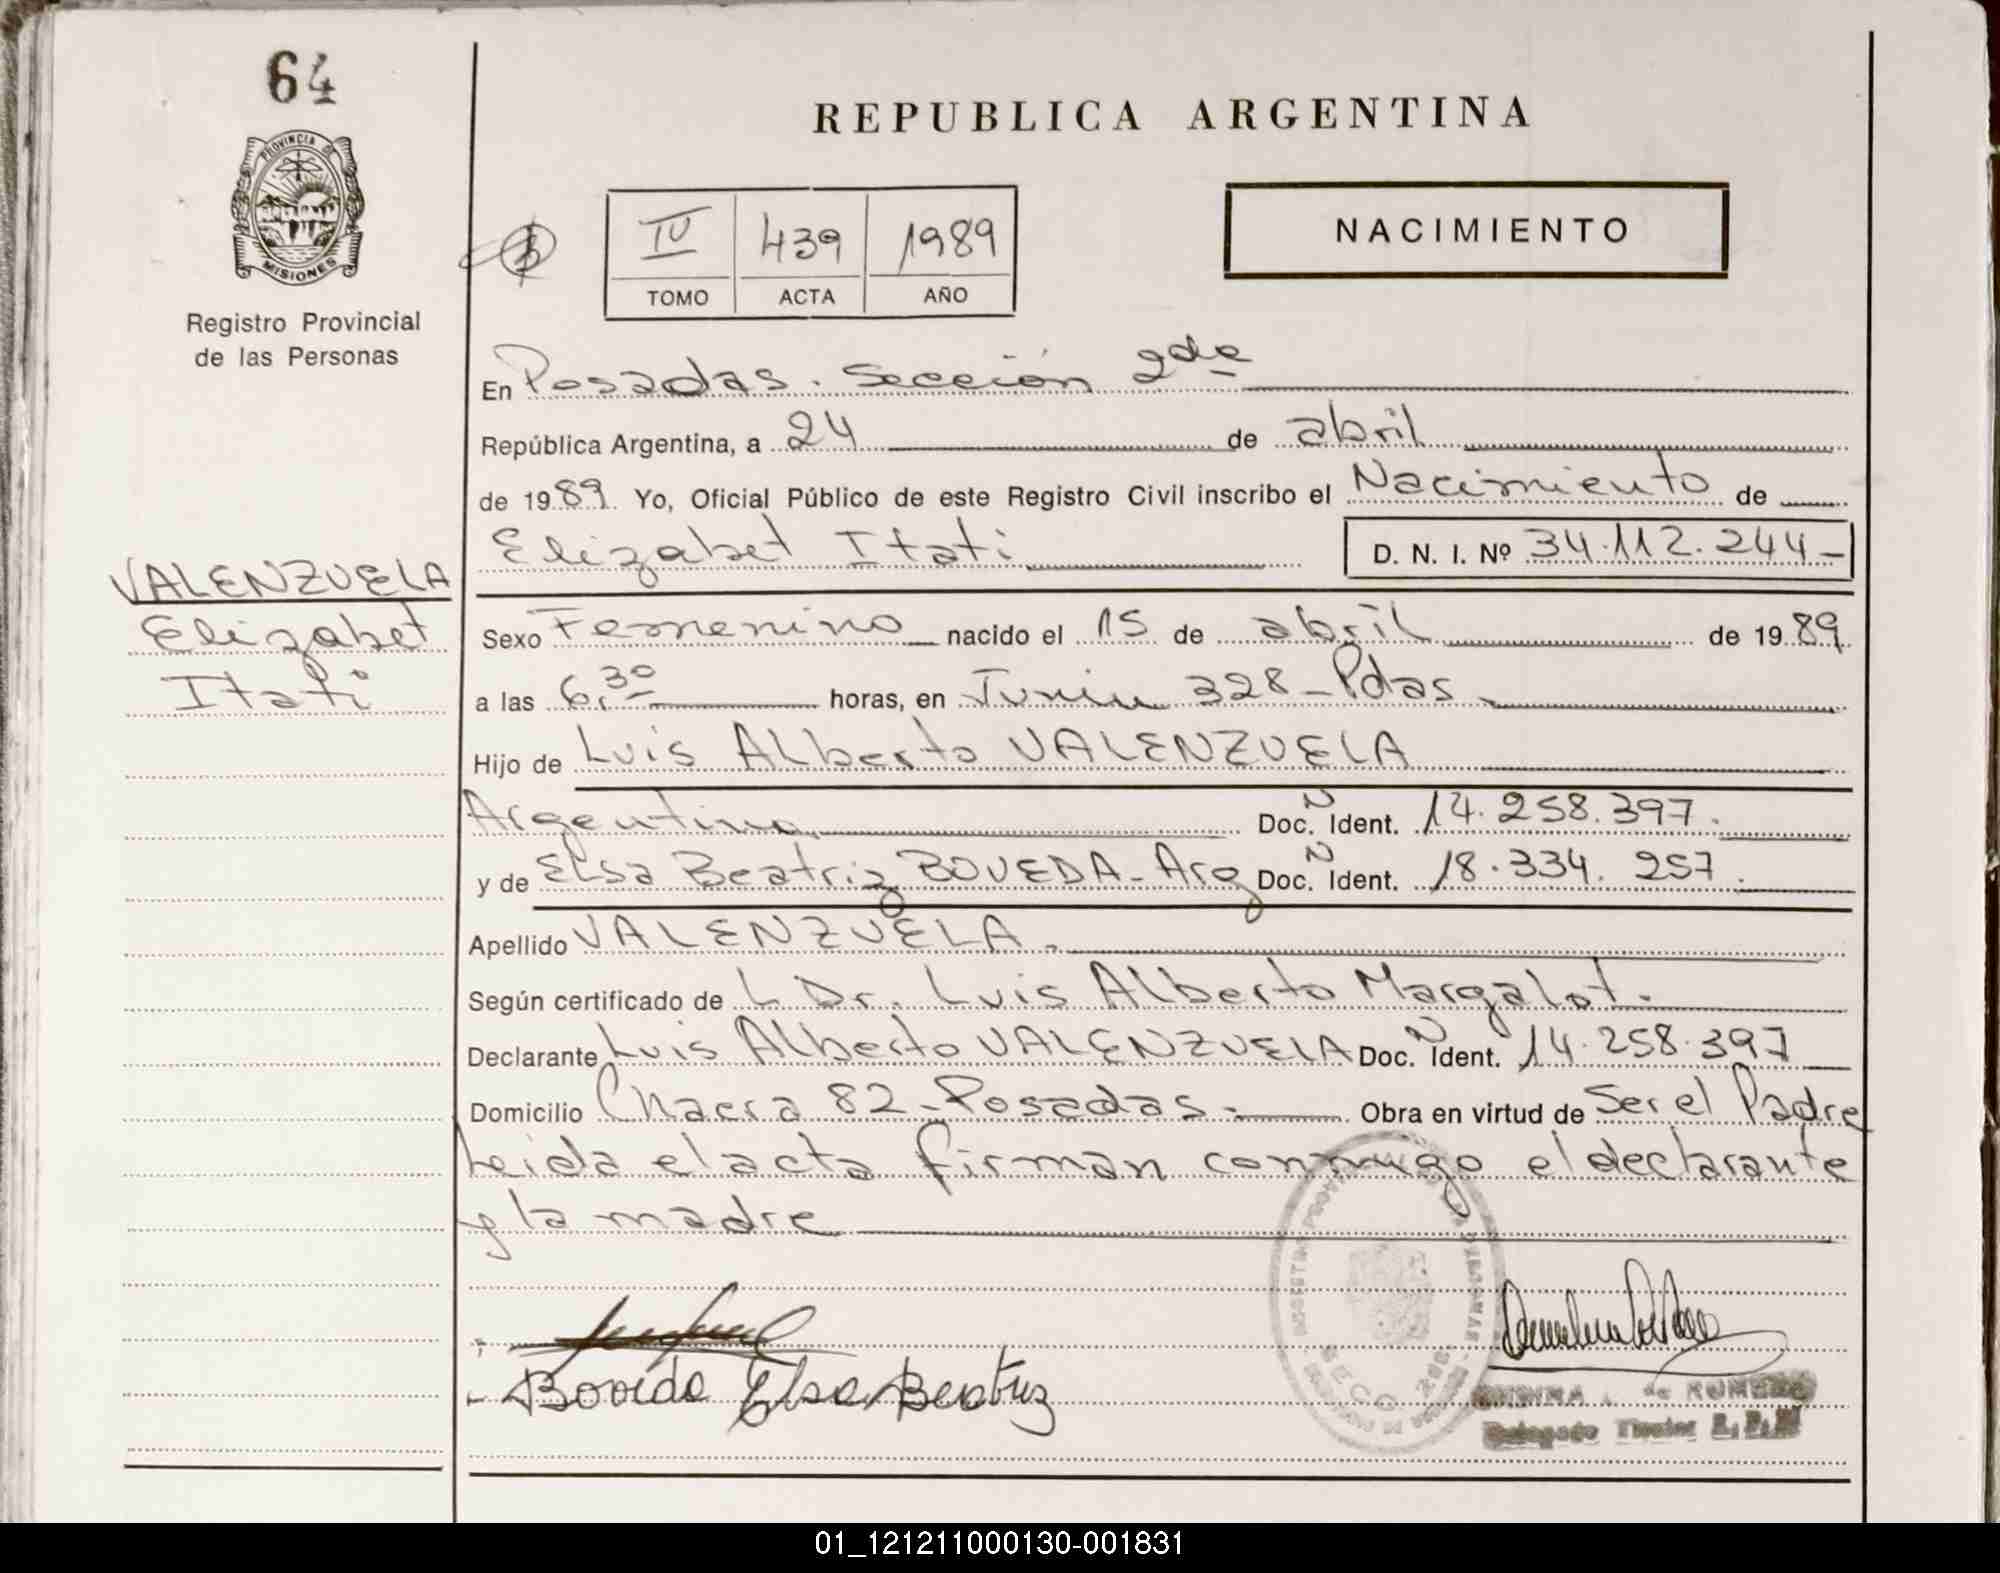 64
PROVINCIA DE
MISIONES
Registro Provincial
de las Personas
VALENZUELA
Elizabet
Itati
REPUBLICA ARGENTINA
IV 439 1989
TOMO ACTA AÑO
NACIMIENTO
En Posadas. Sección 2da
República Argentina, a 24 de abril
de 1989. Yo, Oficial Público de este Registro Civil inscribo el Nacimiento de
Elizabet Itati D. N. I. Nº 34.112.244-
Sexo Femenino nacido el 15 de abril de 1989
a las 6,30 horas, en Junin 328-Pdas
Hijo de Luis Alberto VALENZUELA
Argentino Doc. N Ident. 14.258.397.
y de Elsa Beatriz BOVEDA-Arg Doc. N Ident. 18.334.257.
Apellido VALENZUELA.
Según certificado de L Dr. Luis Alberto Margalot.
Declarante Luis Alberto VALENZUELA Doc. N Ident. 14.258.397
Domicilio Chacra 82-Posadas.- Obra en virtud de Ser el Padre
Leida el acta firman conmigo el declarante
y la madre
Boveda Elsa Beatriz
SECC. 2da
de ROMERO
Delegado Titular R.P.
01_121211000130-001831